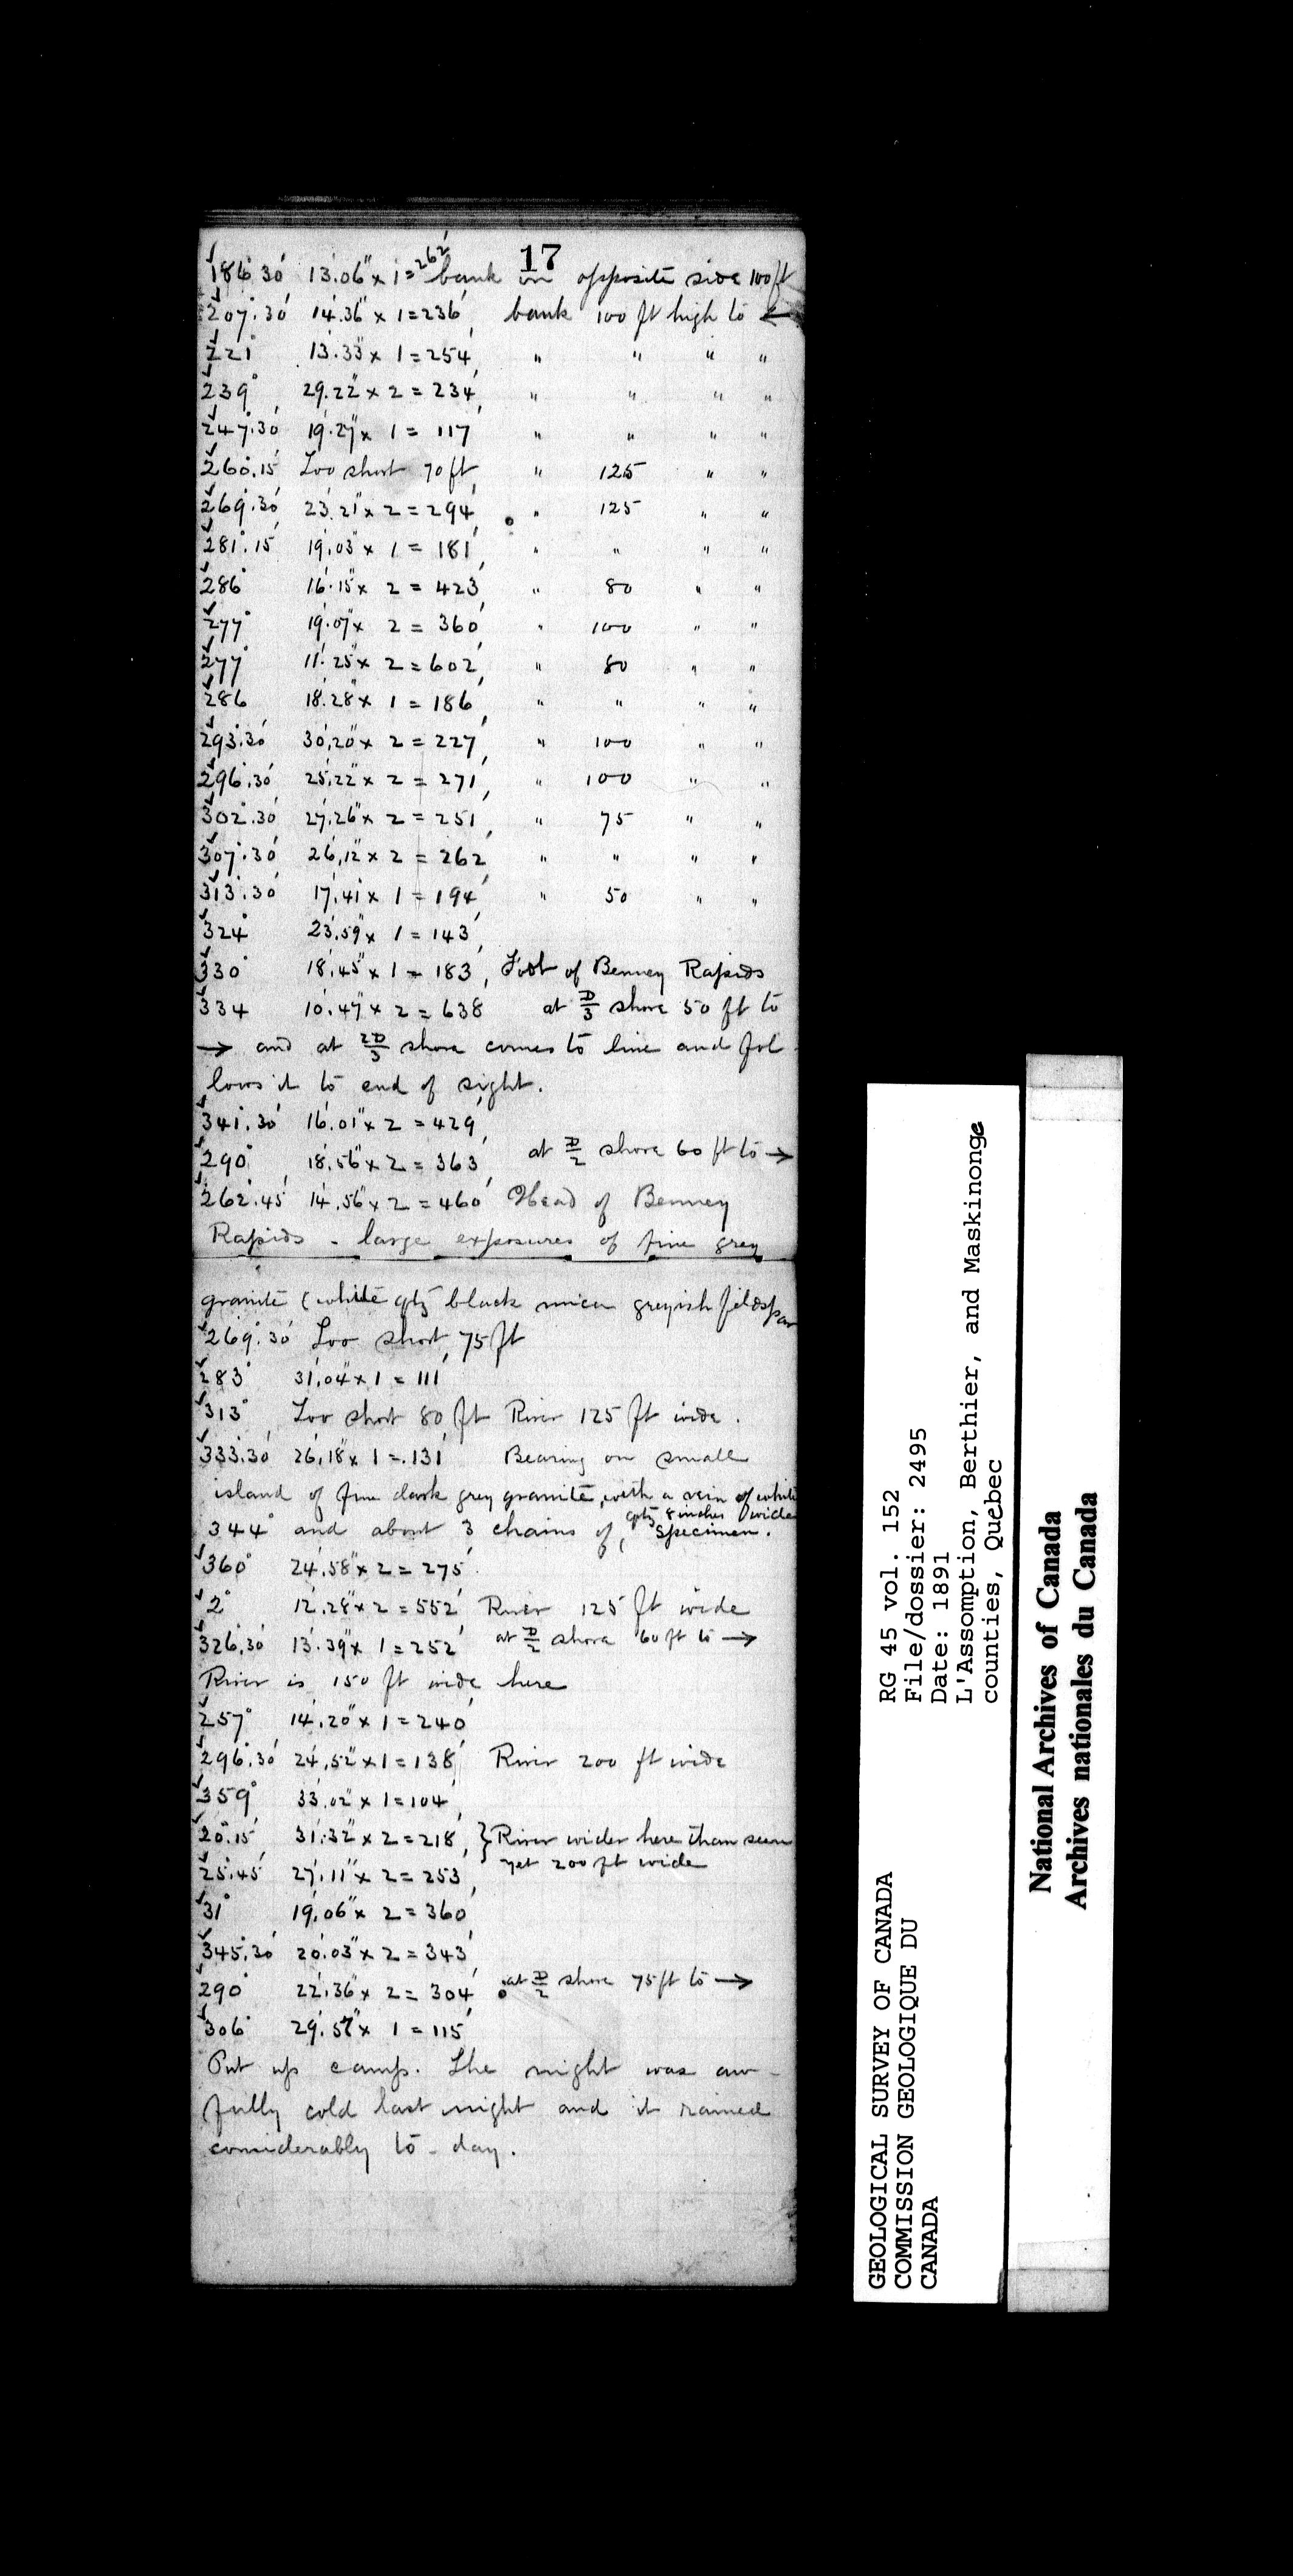 17
186°30' 13.06" x 1 = 262' bank on opposite side 100 ft
207°.30' 14'.36" x 1 = 236' bank 100 ft high to ←
221° 13'.33" x 1 = 254' " " " "
239° 29'.22" x 2 = 234' " " " "
247°.30' 19'.27" x 1 = 117' " " " "
260°.15' Too short 70 ft, " 125 " "
269°.30' 23'.21" x 2 = 294' " 125 " "
281°.15' 19'.03" x 1 = 181' " " " "
286° 16'.15" x 2 = 423' " 80 " "
277° 19'.07" x 2 = 360' " 100 " "
277° 11'.25" x 2 = 602' " 80 " "
286 18'.28" x 1 = 186' " " " "
293°.30' 30'.20" x 2 = 227' " 100 " "
296°.30' 25'.22" x 2 = 271' " 100 " "
302°.30' 27'.26" x 2 = 251' " 75 " "
307°.30' 26'.12" x 2 = 262' " " " "
313°.30' 17'.41" x 1 = 194' " 50 " "
324° 23'.59" x 1 = 143'
330° 18'.45" x 1 = 183', Foot of Benney Rapids
334 10'.47" x 2 = 638 at D/3 shore 50 ft to
→ and at 2D/3 shore comes to line and fol-
lows it to end of sight.
341°.30' 16'.01" x 2 = 429'
290° 18'.56" x 2 = 363' at D/2 shore 60 ft to →
262°.45' 14'.56" x 2 = 460' Head of Benney
Rapids - large exposures of fine grey
granite (white qtz black mica greyish feldspar
269°.30' Too short, 75 ft
283° 31'.04" x 1 = 111'
313° Too short 80 ft River 125 ft wide.
333°.30' 26'.18" x 1 = 131' Bearing on small
island of fine dark grey granite, with a vein of white
qtz 8 inches wide
344° and about 3 chains of, Specimen.
360° 24'.58" x 2 = 275'
2° 12'.28" x 2 = 552' River 125 ft wide
326°.30' 13'.39" x 1 = 252' at D/2 shore 60 ft to →
River is 150 ft wide here
257° 14'.20" x 1 = 240'
296°.30' 24'.52" x 1 = 138' River 200 ft wide
359° 33'.02" x 1 = 104'
20°.15' 31'.32" x 2 = 218', } River wider here than seen
yet 200 ft wide
25°.45' 27'.11" x 2 = 253'
31° 19'.06" x 2 = 360'
345°.30' 20'.03" x 2 = 343'
290° 22'.36" x 2 = 304' at D/2 shore 75 ft to →
306° 29'.57" x 1 = 115'
Put up camp. The night was aw-
fully cold last night and it rained
considerably to-day.
GEOLOGICAL SURVEY OF CANADA
COMMISSION GEOLOGIQUE DU
CANADA
RG 45 vol. 152
File/dossier: 2495
Date: 1891
L'Assomption, Berthier, and Maskinonge
counties, Quebec
National Archives of Canada
Archives nationales du Canada